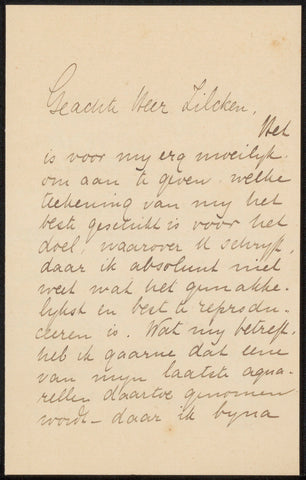 Geachte Heer Zilcken,
Het
is voor my erg moeilyk
om aan te geven welke
teekening van my het
beste geschikt is voor het
doel, waarover U schryft,
daar ik absoluut niet
weet wat het gemakke-
lykst en best te reprodu-
ceeren is. Wat my betreft,
heb ik gaarne dat eene
van mijn laatste aqua-
rellen daartoe genomen
wordt – daar ik byna